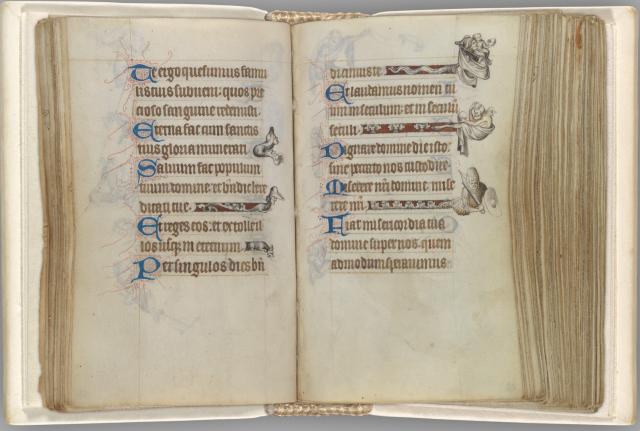 Te ergo quesumus famu
lis tuis subueni: quos pre
cioso sanguine redemisti.
Eterna fac cum sanctis
tuis gloria munerari.
Saluum fac populum
tuum domine: et bn̄dic here
ditati tue.
Et rege eos: et extolle il
los usq; in eternum.
Per singulos dies bn̄
dicimus te.
Et laudamus nomen tu
um in seculum: et in seculū
seculi.
Dignare domine die isto:
sine peccato nos custodire.
Miserere nrī domine: mise
rere nrī.
Fiat misericordia tua
domine super nos: quem
admodum sperauimus